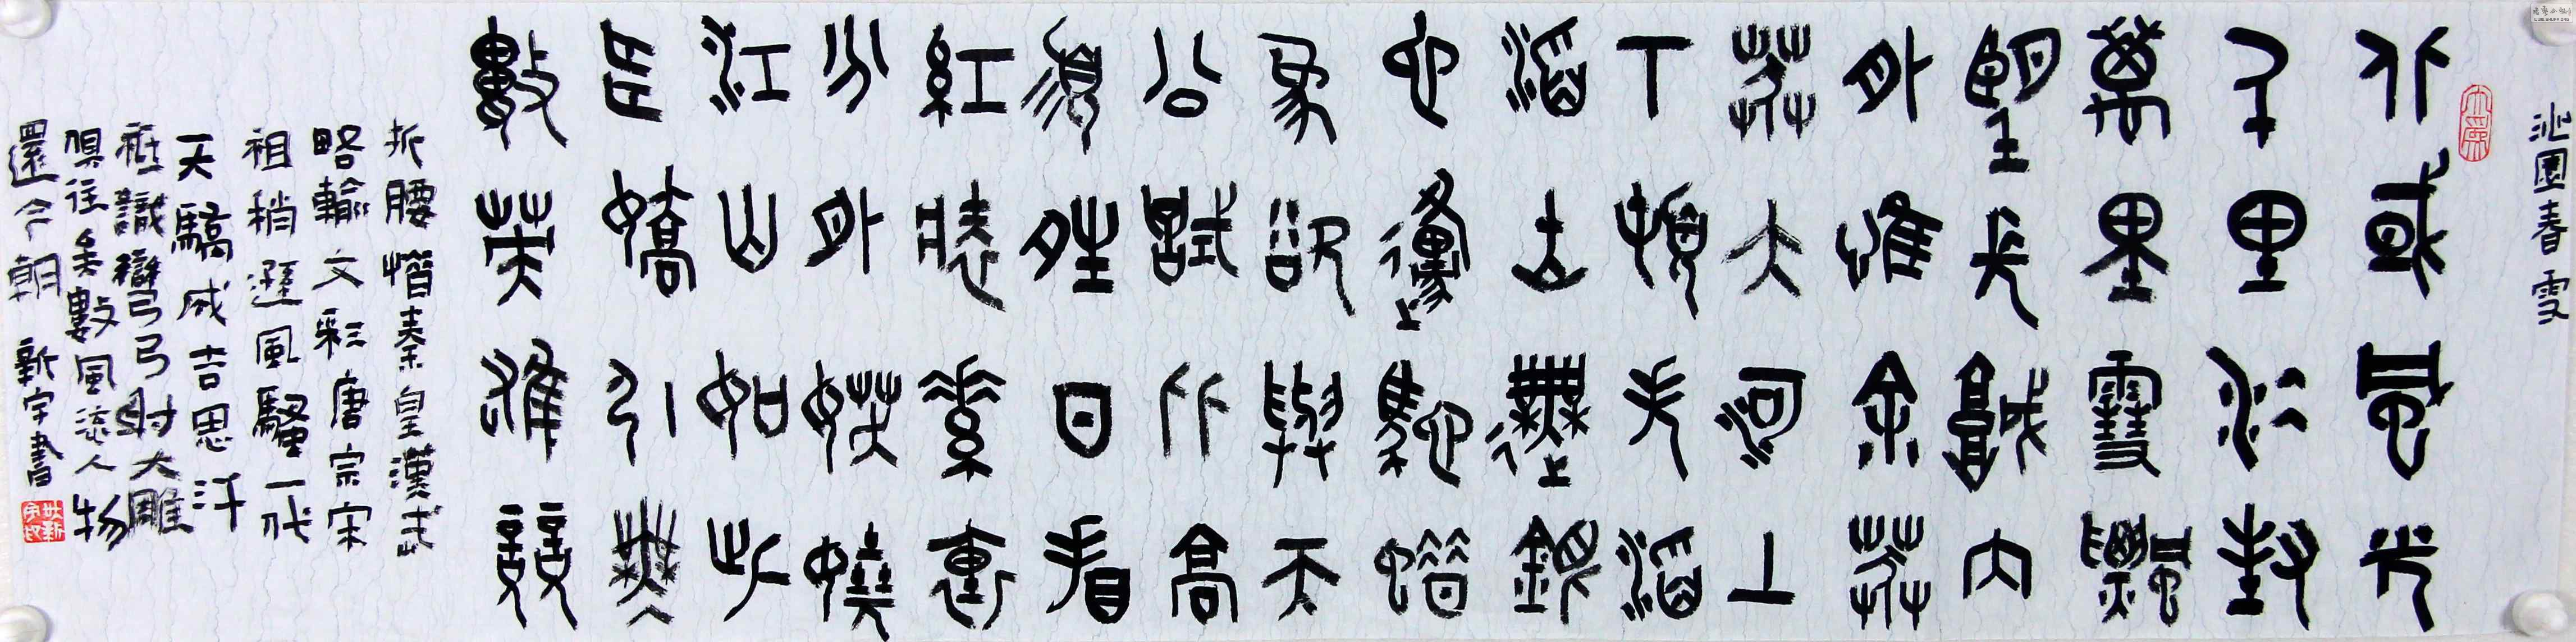 沁園春雪
北國風光
千里冰封
萬里雪飄
望長城內
外惟余莽
莽大河上
下頓失滔
滔山舞銀
蛇原馳蠟
象欲與天
公試比高
須晴日看
紅裝素裹
分外妖嬈
江山如此
多嬌引無
數英雄競
折腰惜秦皇漢武
略輸文彩唐宗宋
祖稍遜風騷一代
天驕成吉思汗
祗識彎弓射大雕
俱往矣數風流人物
還今朝 新宇書